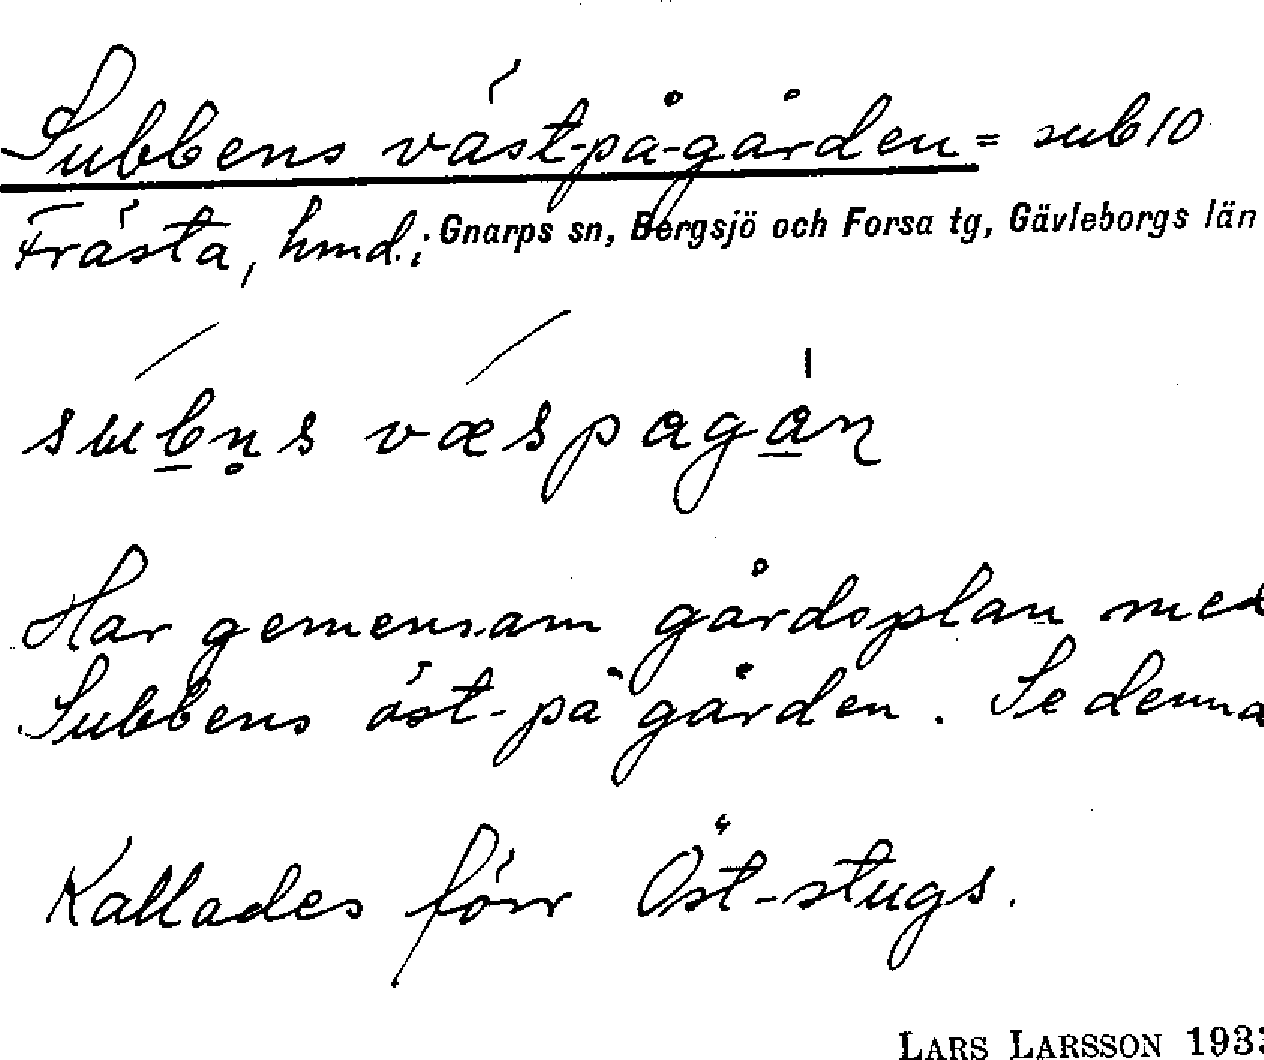 Subbens väst-på-gården = sub 10
Frästa, hmd.; Gnarps sn, Bergsjö och Forsa tg, Gävleborgs län
Har gemensam gårdsplan med
Subbens öst-på gården. Se denna
Kallades förr Öst-stugs.
LARS LARSSON 193